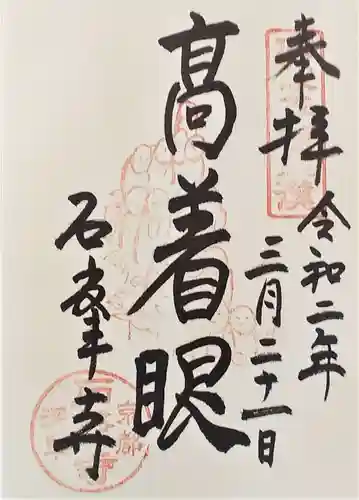 奉拝
令和二年
三月二十一日
高着眼
石峯寺